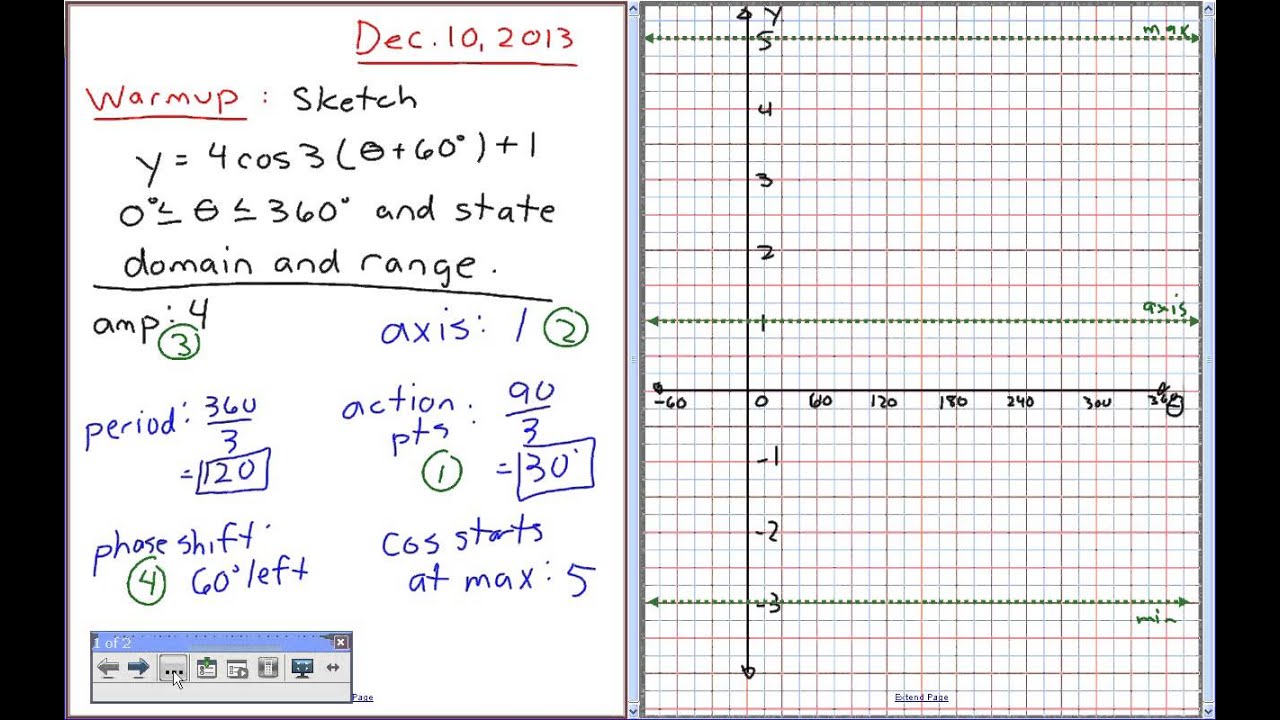 Dec. 10, 2013
Warmup : Sketch
y = 4 cos 3 (θ + 60°) + 1
0° ≤ θ ≤ 360° and state
domain and range.
amp: 4
③
axis: 1 ②
period: 360/3
= 120
action pts : 90/3
① = 30°
phase shift:
④ 60° left
cos starts
at max: 5
1 of 2
Page
y
max
5
4
3
2
axis
1
-60 0 60 120 180 240 300 360
θ
-1
-2
-3
min
Extend Page